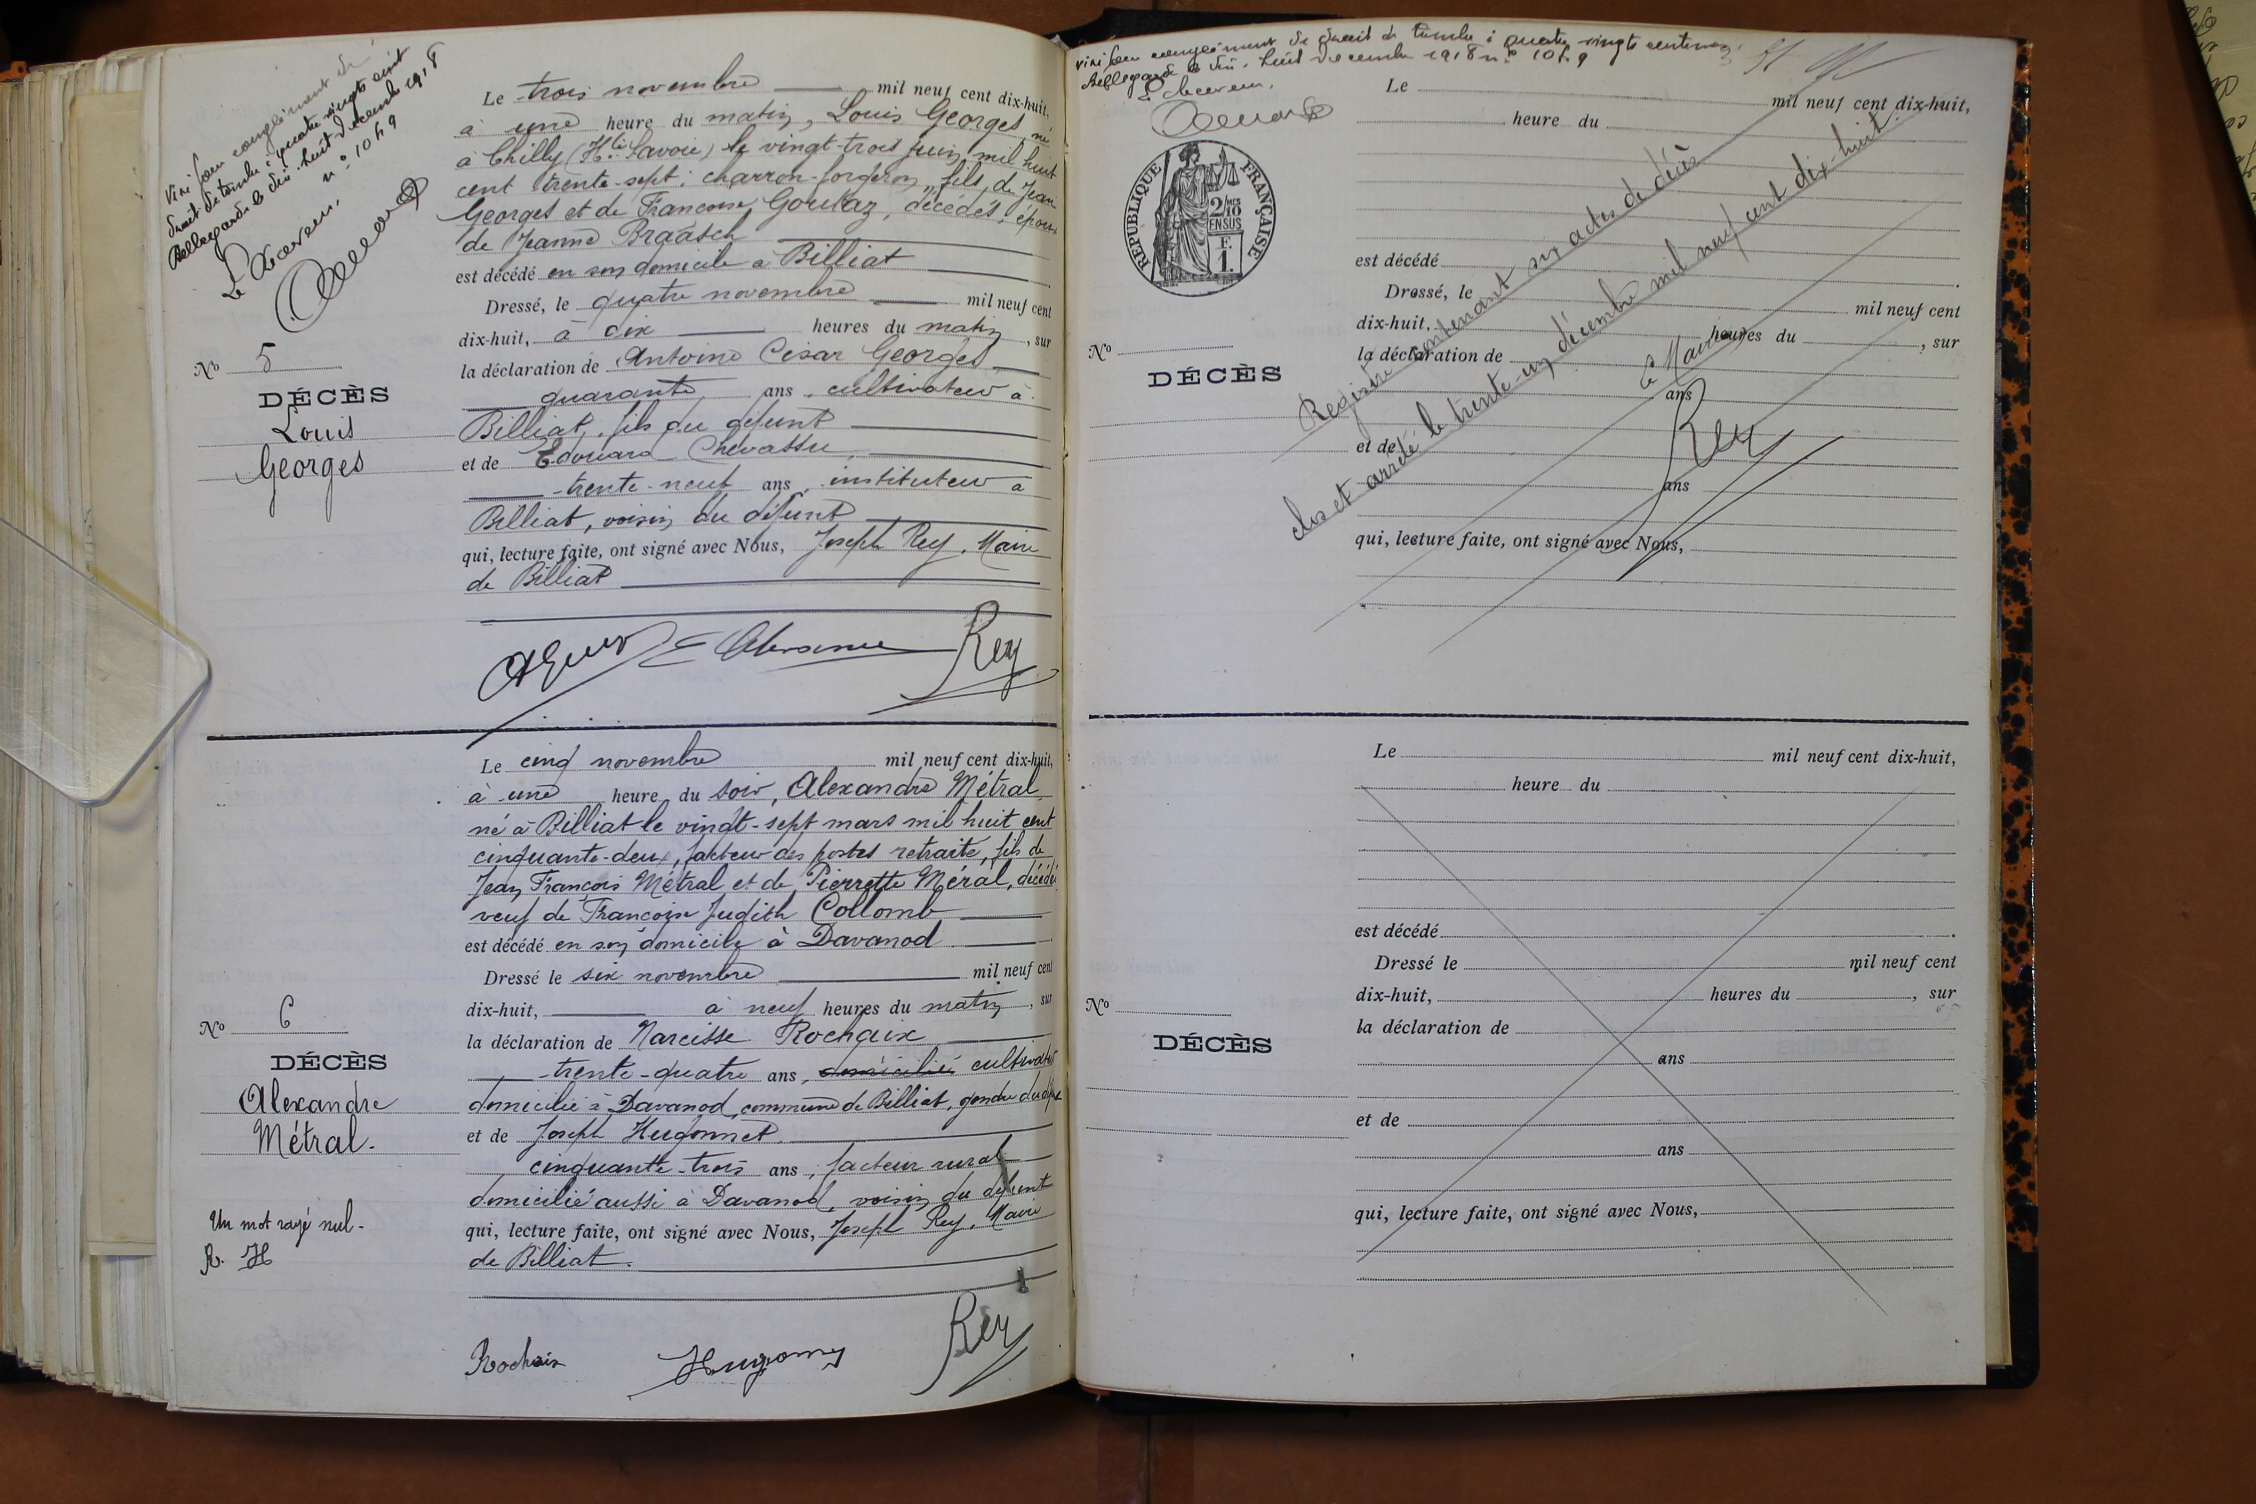 Visé pour complément de
droit de timbre à quatre vingts cent
Bellegarde le dix-huit décembre 1918
n° 1049
Le Receveur,
Le trois novembre mil neuf cent dix-huit,
à une heure du matin, Louis Georges, né
à Chilly (Hte Savoie) le vingt-trois juin mil huit
cent trente-sept; charron-forgeron, fils de Jean
Georges et de Françoise Goulaz, décédés, époux
de Jeanne Braasch
est décédé en son domicile à Billiat
Dressé, le quatre novembre mil neuf cent
dix-huit, à dix heures du matin, sur
la déclaration de Antoine César Georges
quarante ans, cultivateur à
Billiat, fils du défunt
et de Edouard Chevassu,
trente-neuf ans, instituteur à
Billiat, voisin du défunt
qui, lecture faite, ont signé avec Nous, Joseph Rey, Maire
de Billiat
Rey
No 5
DÉCÈS
Louis
Georges
Le cinq novembre mil neuf cent dix-huit,
à une heure du soir, Alexandre Métral,
né à Billiat le vingt-sept mars mil huit cent
cinquante-deux, facteur des postes retraité, fils de
Jean François Métral et de Pierrette Méral, décédés
veuf de Françoise Judith Collomb
est décédé en son domicile à Davanod
Dressé le six novembre mil neuf cent
dix-huit, à neuf heures du matin, sur
la déclaration de Narcisse Rochaix
trente-quatre ans, domicilié cultivateur
domicilié à Davanod, commune de Billiat, gendre du défunt
et de Joseph Hugonnet
cinquante-trois ans, facteur rural
domicilié aussi à Davanod, voisin du défunt
qui, lecture faite, ont signé avec Nous, Joseph Rey, Maire
de Billiat.
No 6
DÉCÈS
Alexandre
Métral.
Un mot rayé nul.
R. H
Rochaix
Rey
Visé pour complément de droit de timbre à quatre vingts centimes
Bellegarde le dix-huit décembre 1918 n° 1049
Le Receveur,
RÉPUBLIQUE FRANÇAISE
2/10 MES
EN SUS
1 F.
Le mil neuf cent dix-huit,
heure du
est décédé
Dressé, le mil neuf cent
dix-huit, heures du , sur
la déclaration de
ans
et de
ans
qui, lecture faite, ont signé avec Nous,
No
DÉCÈS
Registre contenant six actes de décès
clos et arrêté le trente-un décembre mil neuf cent dix-huit.
Le Maire
Rey
Le mil neuf cent dix-huit,
heure du
est décédé
Dressé le mil neuf cent
dix-huit, heures du , sur
la déclaration de
ans
et de
ans
qui, lecture faite, ont signé avec Nous,
No
DÉCÈS